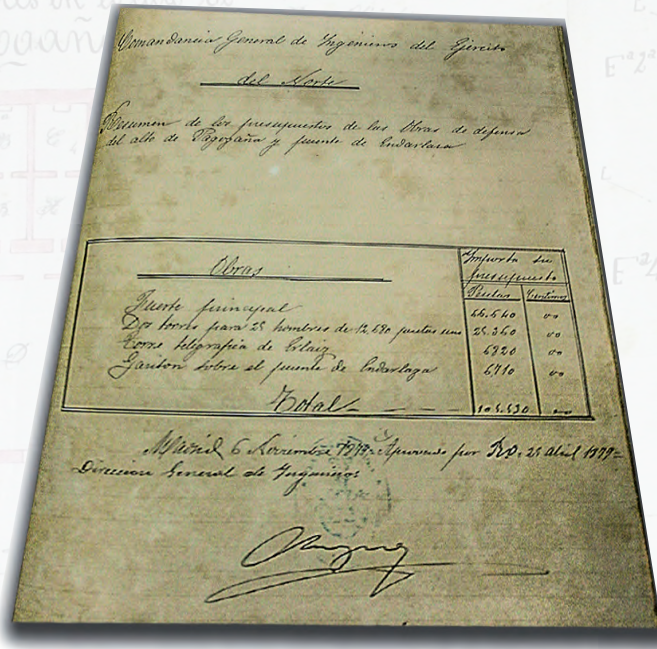 Comandancia General de Ingenieros del Ejército
del Norte
Resumen de los presupuestos de las Obras de defensa
del alto de Pagogaña y puente de Endarlasa
Obras
Importa su
presupuesto
Pesetas Centimos
Fuerte principal 66.640 00
Dos torres para 25 hombres de 12,680 pesetas una 25.360 00
Torre telegrafia de Erlaiz 6820 00
Gariton sobre el puente de Endarlaza 6710 00
Total 00
Madrid 6 Noviembre Aprovado por RO. 25 abril 1879=
Direccion General de Ingenieros